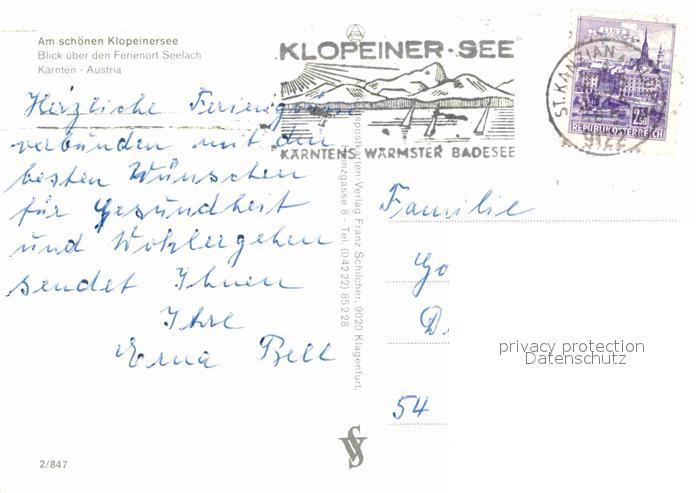 Am schönen Klopeinersee
Blick über den Ferienort Seelach
Kärnten · Austria
KLOPEINER·SEE
KÄRNTENS WÄRMSTER BADESEE
LINZ
REPUBLIK ÖSTERREICH
ST. KANZIAN
9122
Herzliche Feriengrüsse
verbunden mit den
besten Wünschen
für Gesundheit
und Wohlergehen
sendet Ihnen
Ihre
Erna Bell
spostkarten-Verlag Franz Schilcher, 9020 Klagenfurt,
gasse 8 - Tel. (04222) 85228
Familie
Go
D.
54
privacy protection
Datenschutz
2/847